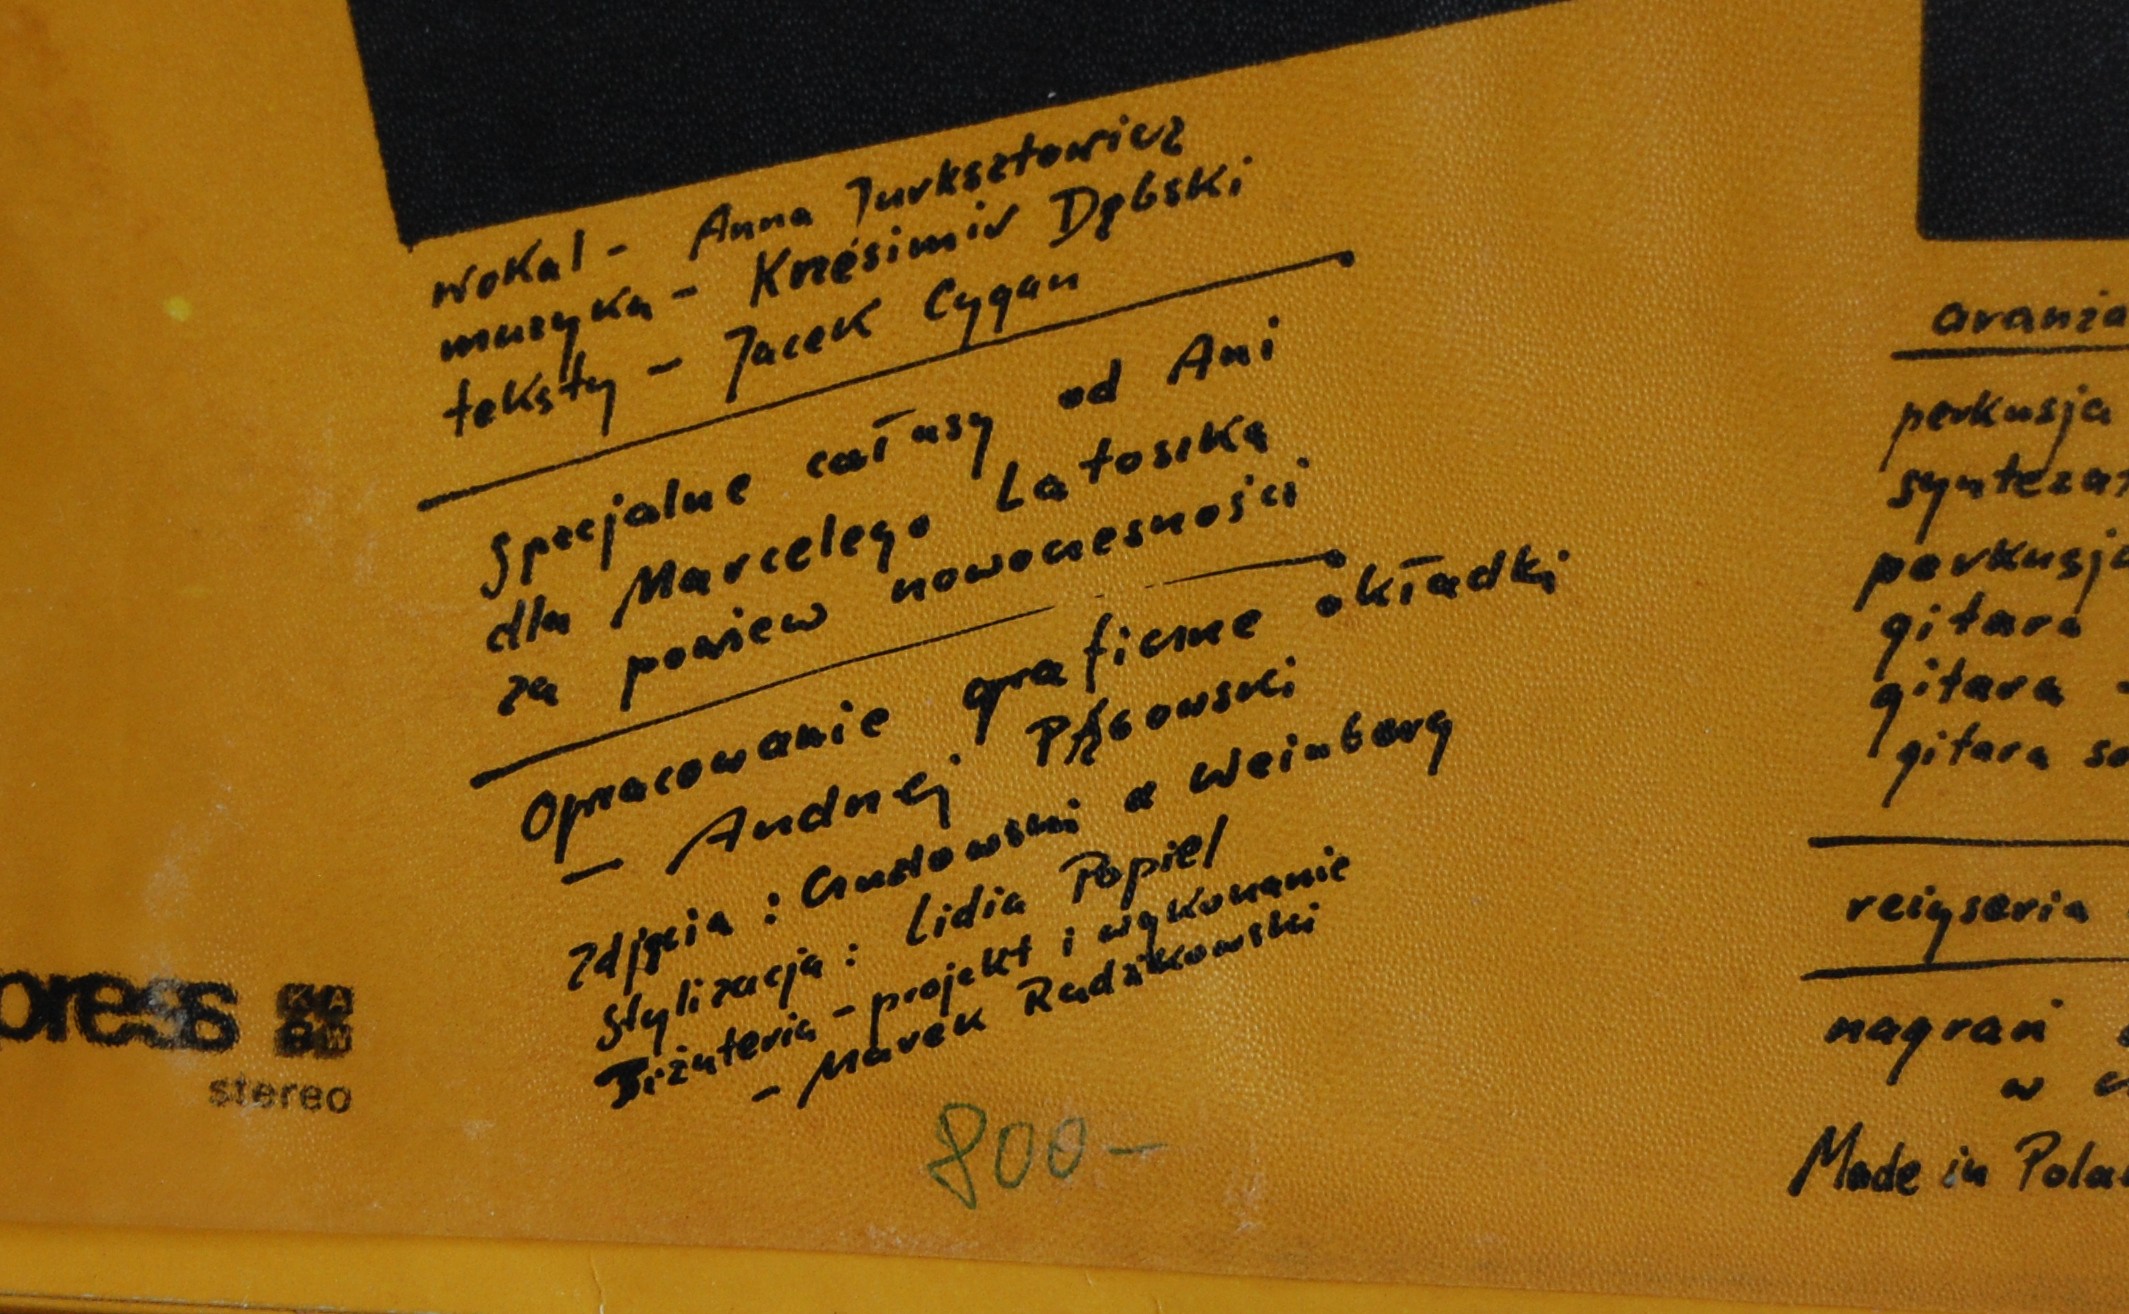 wokal - Anna Jurksztowicz
muzyka - Krzesimir Dębski
teksty - Jacek Cygan
Specjalne całusy od Ani
dla Marcelego Latosika
za powiew nowoczesności
Opracowanie graficzne okładki
- Andrzej Pągowski
zdjęcia : Gustowski & Weinberg
stylizacja : Lidia Popiel
Biżuteria - projekt i wykonanie
- Marek Radzikowski
800-
press KAAW
stereo
aranża
perkusja
syntezat
perkusja
gitara
gitara -
gitara so
reżyseria
nagrań
w
Made in Pola